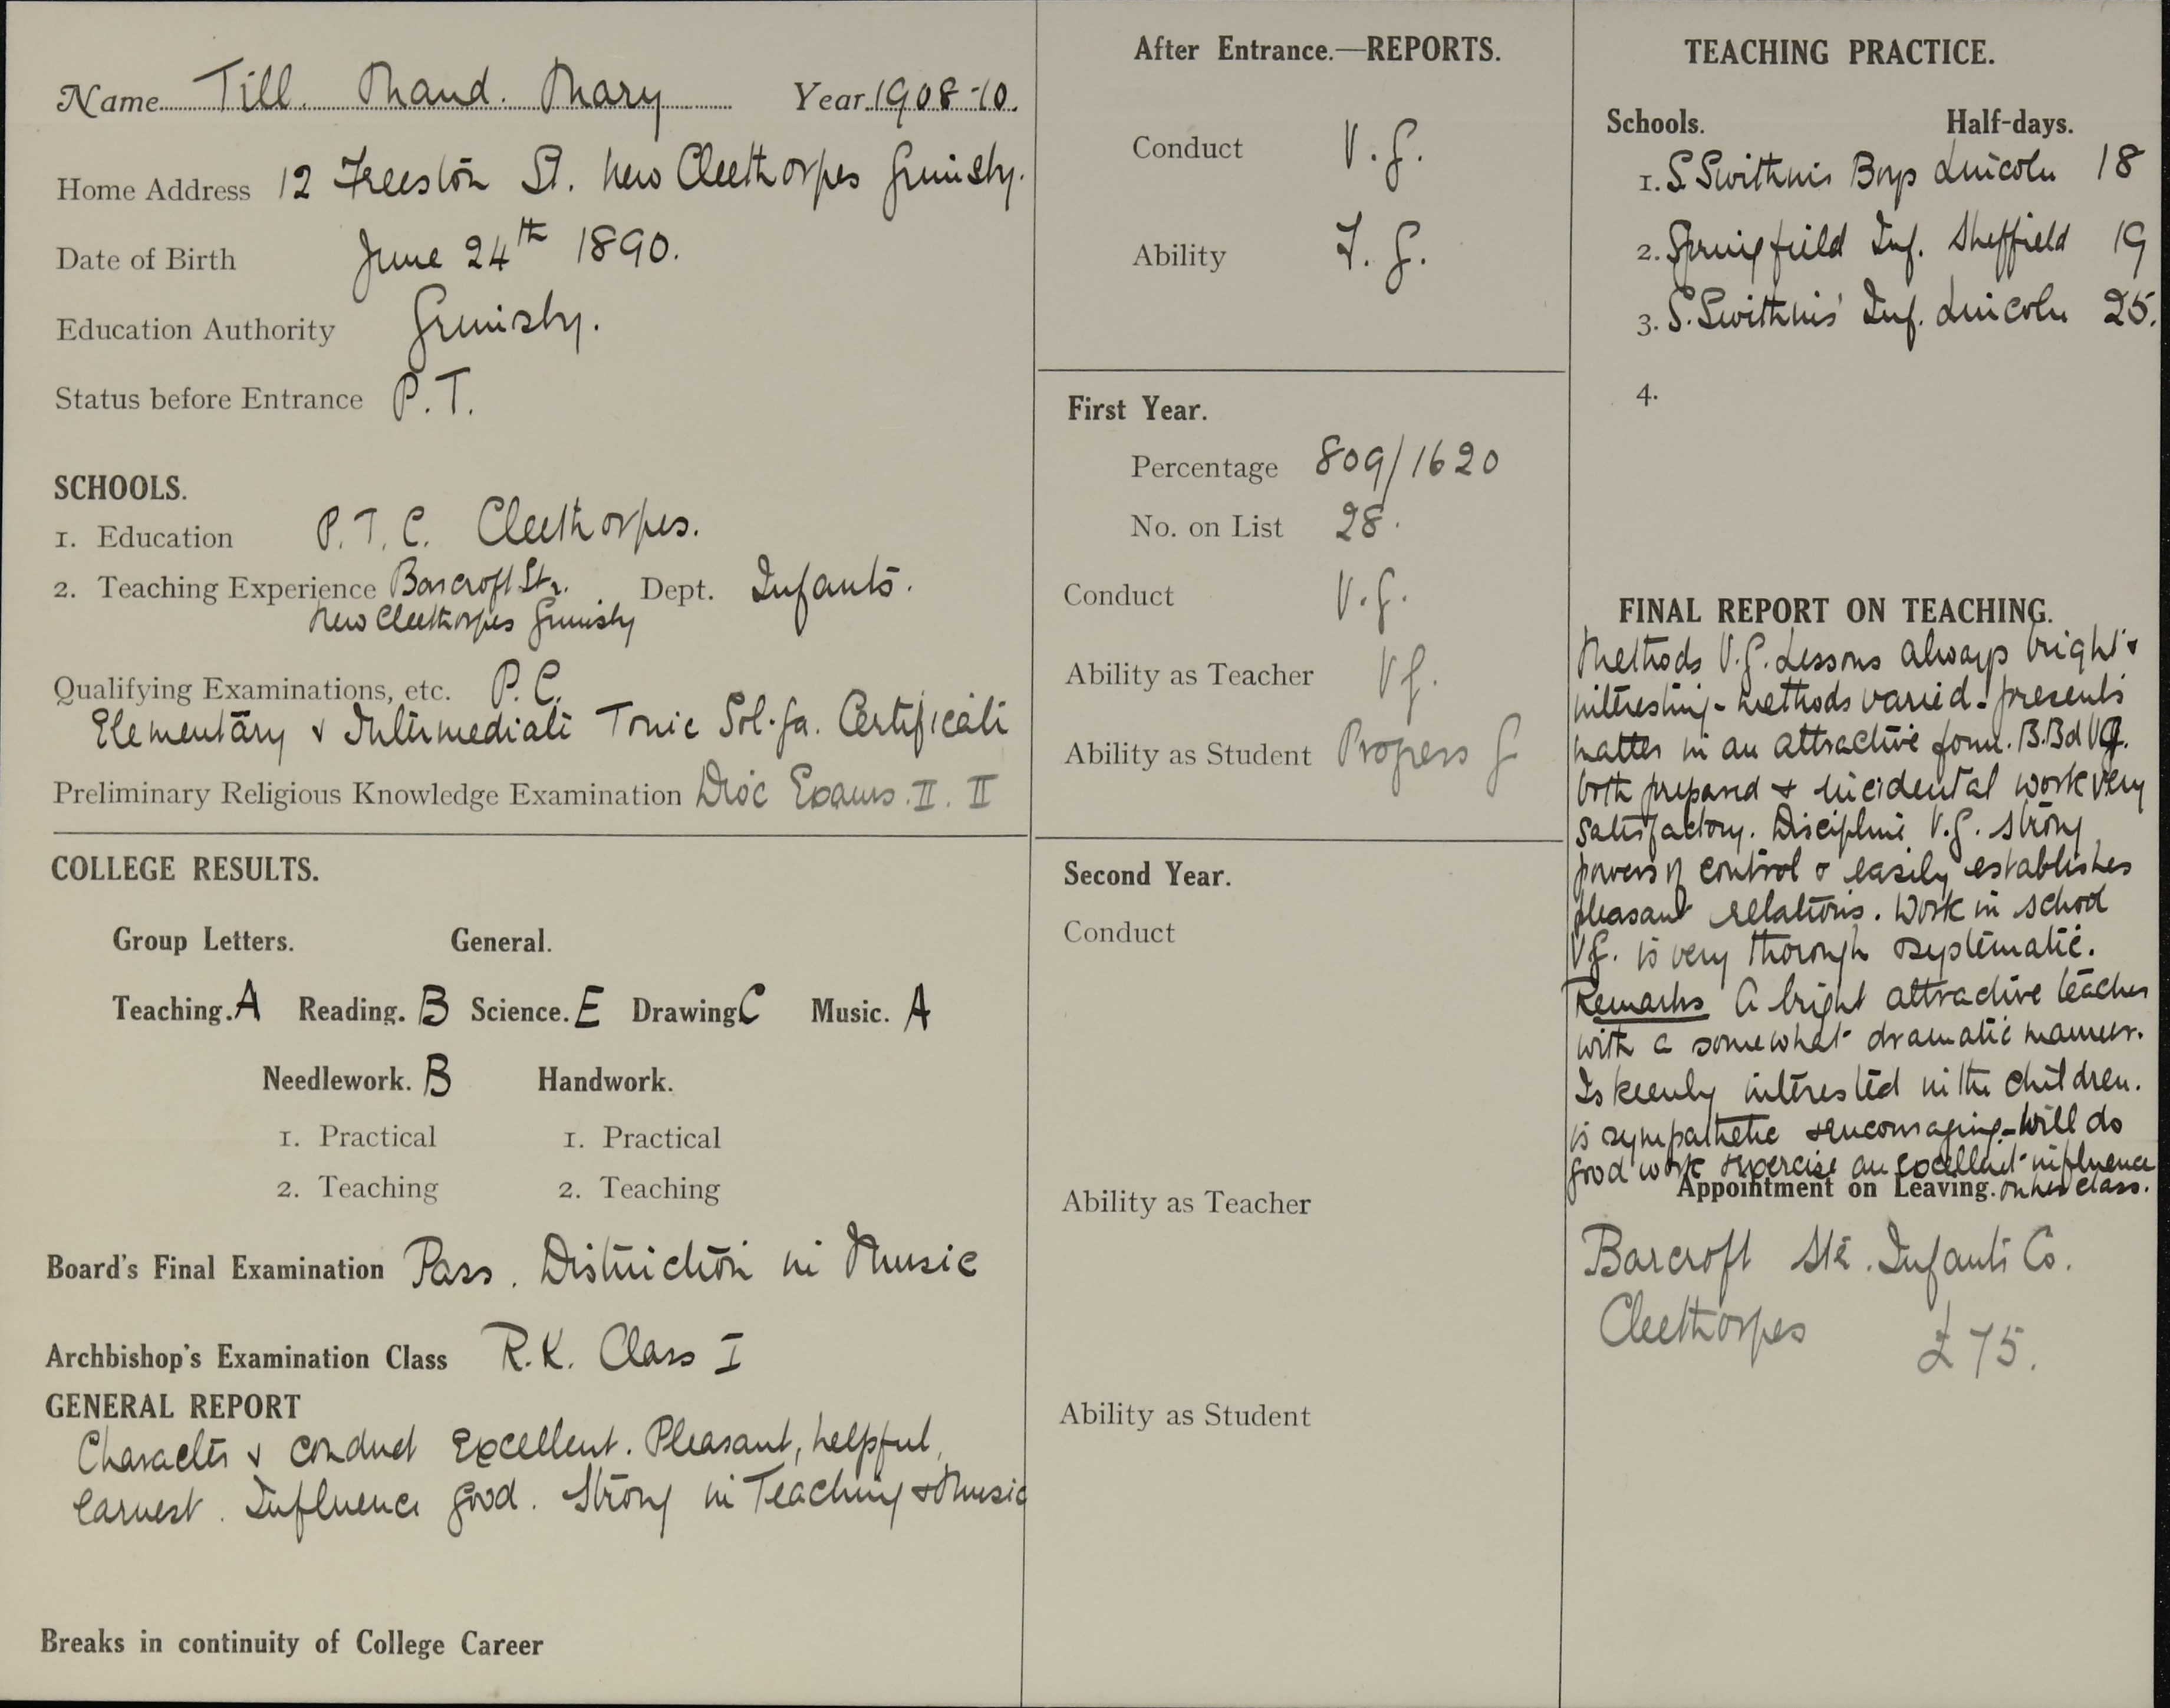 Name Till. Maud. Mary Year 1908-10.
Home Address 12 Freeston St. New Cleethorpes Grimsby.
Date of Birth June 24th 1890.
Education Authority Grimsby.
Status before Entrance P.T.
SCHOOLS.
1. Education P.T.C. Cleethorpes.
2. Teaching Experience Barcroft Str. Dept. Infants.
New Cleethorpes Grimsby
Qualifying Examinations, etc. P.C.
Elementary & Intermediate Tonic Sol-fa. Certificate
Preliminary Religious Knowledge Examination Dioc Exams. II. II
COLLEGE RESULTS.
Group Letters. General.
Teaching. A Reading. B Science. E Drawing C Music. A
Needlework. B Handwork.
1. Practical 1. Practical
2. Teaching 2. Teaching
Board's Final Examination Pass. Distinction in Music
Archbishop's Examination Class R.K. Class I
GENERAL REPORT
Character & conduct Excellent. Pleasant, helpful,
earnest. Influence good. Strong in Teaching & Music
Breaks in continuity of College Career
After Entrance.—REPORTS.
Conduct V.G.
Ability F.G.
First Year.
Percentage 809/1620
No. on List 28.
Conduct V.G.
Ability as Teacher VG.
Ability as Student Progress G
Second Year.
Conduct
Ability as Teacher
Ability as Student
TEACHING PRACTICE.
Schools. Half-days.
1. S. Swithin's Boys Lincoln 18
2. Springfield Inf. Sheffield 19
3. S. Swithin's Inf. Lincoln 25.
4.
FINAL REPORT ON TEACHING.
Methods V.G. Lessons always bright &
interesting - methods varied - presents
matter in an attractive form. B.Bd VG.
both prepared & incidental work very
satisfactory. Discipline V.G. strong
powers of control & easily establishes
pleasant relations. Work in school
VG. is very thorough & systematic.
Remarks A bright attractive teacher
with a somewhat dramatic manner.
Is keenly interested in the children.
is sympathetic & encouraging - will do
good work & exercise an excellent influence
on her class.
Appointment on Leaving.
Barcroft Str. Infants Co.
Cleethorpes £75.